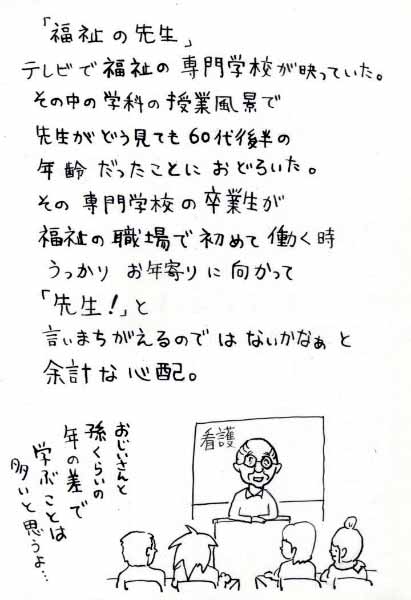 「福祉の先生」
テレビで福祉の専門学校が映っていた。
その中の学科の授業風景で
先生がどう見ても60代後半の
年齢だったことにおどろいた。
その専門学校の卒業生が
福祉の職場で初めて働く時
うっかりお年寄りに向かって
「先生!」と
言いまちがえるのではないかなぁと
余計な心配。
看護
おじいさんと
孫くらいの
年の差で
学ぶことは
多いと思うよ…